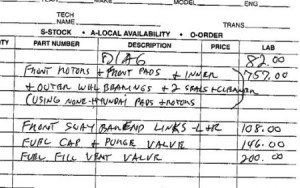 MODEL ENG
TECH
NAME TRANS.
S-STOCK • A-LOCAL AVAILABILITY • O-ORDER
ITY PART NUMBER DESCRIPTION PRICE LAB
DIAG 82.00
FRONT ROTORS + FRONT PADS + INNER 757.00
+ OUTER WHL BEARINGS + 2 SEALS +
(USING NONE-HYUNDAI PADS + ROTORS
FRONT SWAY BAR END LINKS - L+R 108.00
FUEL CAP + PURGE VALVE 146.00
FUEL FILL VENT VALVE 200.00